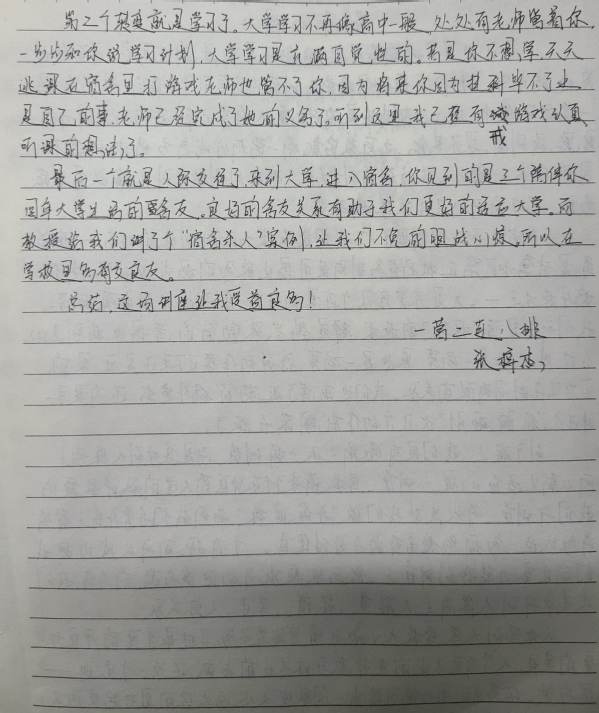 第二个转变就是学习了。大学学习不再像高中一般，处处有老师管着你，
一步步和你说学习计划，大学学习是充满自觉性的。若是你不想学，天天
逃课在宿舍里打游戏老师也管不了你，因为将来你因为挂科毕不了业
是自己的事，老师已经完成了她的义务了。听到这里我已经有戒游戏认真
听课的想法了。
最后一个就是人际交往了，来到大学，进入宿舍，你见到的是三个陪伴你
四年大学生活的室友。良好的舍友关系有助于我们更好的适应大学。而
教授给我们讲了个“宿舍杀人”案例，让我们不免的胆战心惊。所以在
学校里多有交良友。
总而，这场讲座让我受益良多！
一营二连八排
张